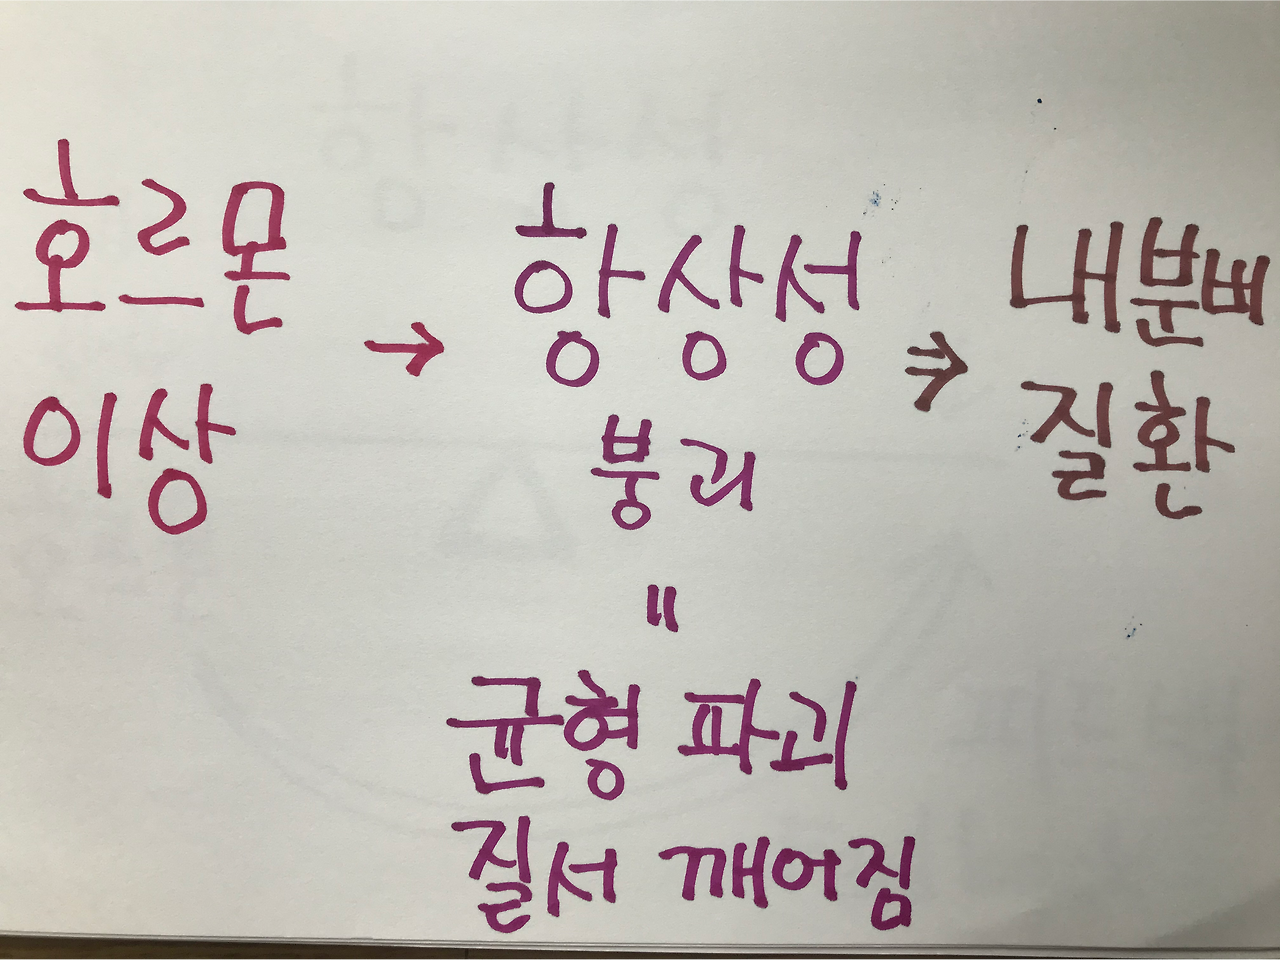 호르몬
이상
→
항상성
붕괴
=
균형 파괴
질서 깨어짐
⇒
내분비
질환